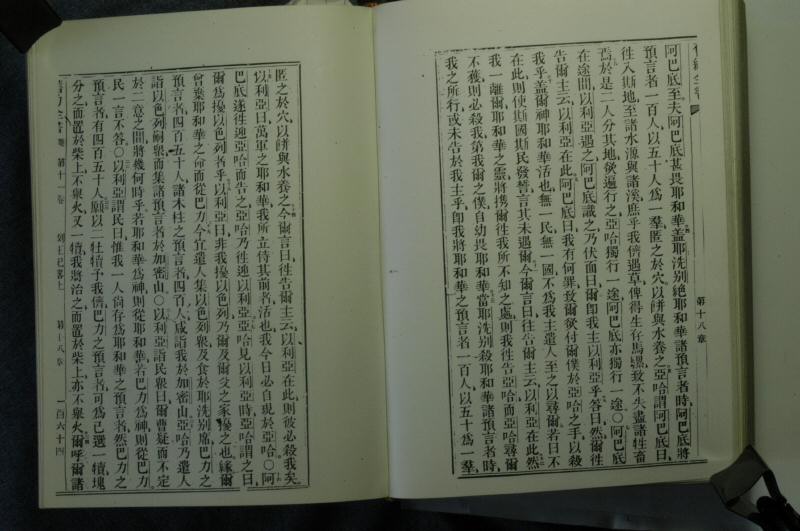 舊約全書
第十八章
阿巴底至、夫阿巴底甚畏耶和華、蓋耶洗別絕耶和華諸預言者時、阿巴底將
預言者一百人、以五十人為一羣、匿之於穴、以餅與水養之、亞哈謂阿巴底曰、
徃入斯地、至諸水源與諸溪、庶乎我儕遇草、俾得生存馬騾、致不失盡諸牲畜
焉、於是二人分其地、欲遍行之、亞哈獨行一途、阿巴底亦獨行一途、〇阿巴底
在途間、以利亞遇之、阿巴底識之、乃伏面曰、爾卽我主以利亞乎、答曰、然、爾徃
告爾主云、以利亞在此、阿巴底曰、我有何罪、致爾欲付爾僕於亞哈之手、以殺
我乎、蓋爾神耶和華活也、無一民、無一國、不為我主遣人至之以尋爾、若曰不
在此、則使斯國斯民發誓、言其未遇爾、今爾言曰、徃告爾主云、以利亞在此、然
我一離爾、耶和華之靈、將携爾徃我所不知之處、則我徃告亞哈、而亞哈尋爾
不獲、則必殺我、第我爾之僕、自幼畏耶和華、當耶洗別殺耶和華諸預言者時、
我之所行、或未告於我主乎、卽我將耶和華之預言者一百人、以五十為一羣、
匿之於穴、以餅與水養之、今爾言曰、徃告爾主云、以利亞在此、則彼必殺我矣、
以利亞曰、萬軍之耶和華、我所立侍其前者活也、我今日必自現於亞哈、〇阿
巴底遂徃迎亞哈而告之、亞哈乃徃迎以利亞、亞哈見以利亞時、亞哈謂之曰、
爾為擾以色列者乎、以利亞曰、非我擾以色列、乃爾及爾父之家擾之也、緣爾
曾棄耶和華之命、而從巴力、今宜遣人集以色列衆、及食於耶洗別席、巴力之
預言者四百五十人、諸木柱之預言者四百人、咸詣我於加密山、亞哈乃遣人
詣以色列嗣衆、而集諸預言者於加密山、〇以利亞詣民衆曰、爾曹疑而不定
於二意之間、將幾何時乎、若耶和華為神、則從耶和華、若巴力為神、則從巴力、
民一言不答、〇以利亞謂民曰、惟我一人尙存為耶和華之預言者、然巴力之
預言者有四百五十人、願以二牡犢予我儕、巴力之預言者、可為已選一犢、塊
分之而置於柴上、不舉火、又一犢、我將治之、而置於柴上、亦不舉火、爾呼爾諸
舊約全書 第十一卷 列王紀畧上 第十八章 一百六十四